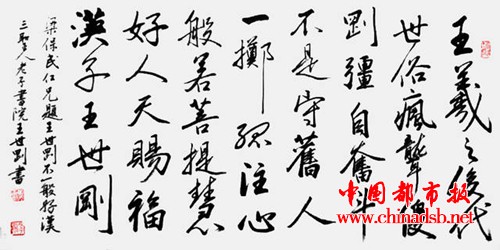 王羲之後代
世俗瘋聾傻
剛彊自奮斗
不是守舊人
一擲孤注心
般若菩提慧
好人天賜福
漢子王世剛
梁保民仁兄題王世剛不一般好漢
三聖人老子書院王世剛書
中国都市报
www.chinadsb.net